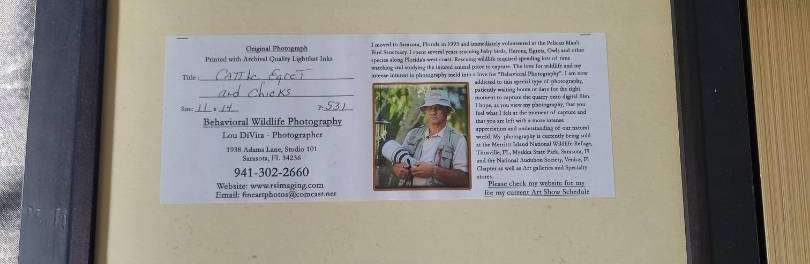 Original Photograph
Printed with Archival Quality Lightfast Inks
Title: Cattle Egret
and Chicks
Size: 11 x 14 #531
Behavioral Wildlife Photography
Lou DiVita - Photographer
1938 Adams Lane, Studio 101
Sarasota, FL 34236
941-302-2660
Website: www.rsimaging.com
Email: fineartphotos@comcast.net
I moved to Sarasota, Florida in 1993 and immediately volunteered at the Pelican Man's
Bird Sanctuary. I spent several years rescuing baby birds, Herons, Egrets, Owls and other
species along Florida's west coast. Rescuing wildlife required spending lots of time
watching and studying the injured animal prior to capture. The love for wildlife and my
intense interest in photography meld into a love for "Behavioral Photography". I am now
addicted to this special type of photography,
patiently waiting hours or days for the right
moment to capture the quarry onto digital film.
I hope, as you view my photography, that you
feel what I felt at the moment of capture and
that you are left with a more intense
appreciation and understanding of our natural
world. My photography is currently being sold
at the Merritt Island National Wildlife Refuge,
Titusville, FL, Myakka State Park, Sarasota, Fl
and the National Audubon Society, Venice, Fl
Chapter as well as Art galleries and Specialty
stores.
Please check my website for my
for my current Art Show Schedule